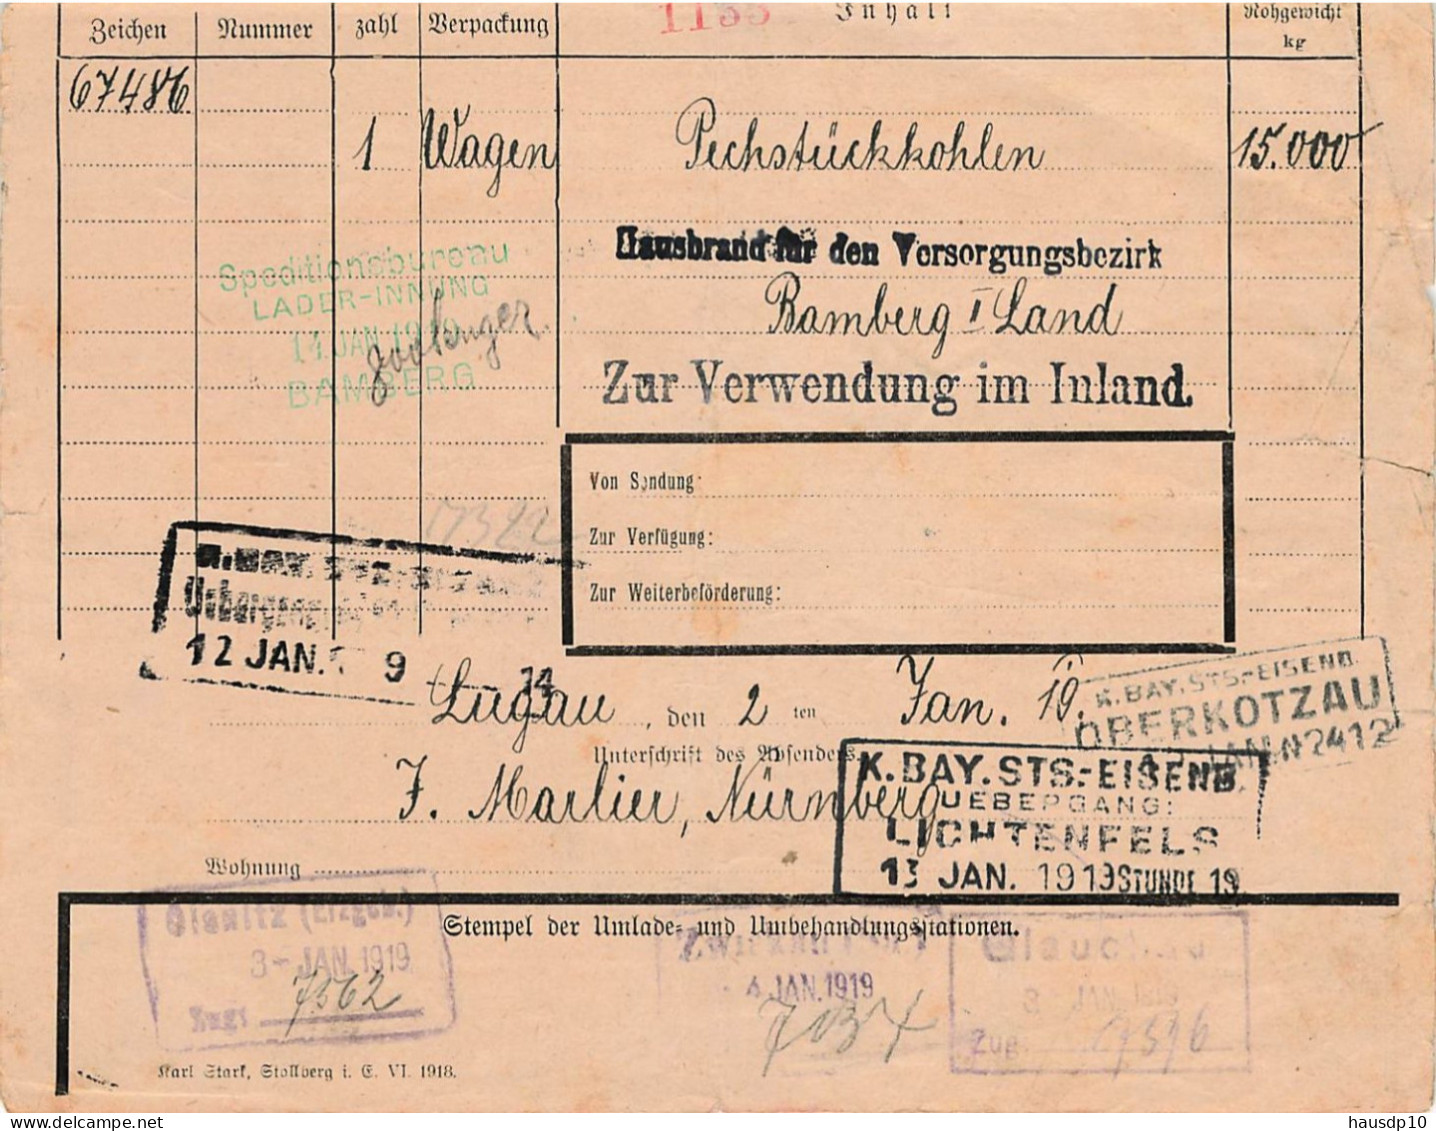 1133 Inhalt Rohgewicht
Zeichen Nummer zahl Verpackung kg
67486
1 Wagen Pechstückkohlen 15.000
Hausbrand für den Versorgungsbezirk
Speditionsbureau
LADER-INNUNG
Bamberg I Land
14 JAN. 1919
BAMBERG
Zur Verwendung im Inland.
Von Sendung:
17322
Zur Verfügung:
Zur Weiterbeförderung:
12 JAN. 9 14
Lugau, den 2ten Jan. 19.
K. BAY. STS.-EISENB.
OBERKOTZAU
JAN. N2412
Unterschrift des Absenders.
F. Marlier, Nürnberg
K. BAY. STS.-EISENB.
UEBERGANG:
LICHTENFELS
13 JAN. 1919 STUNDE 19
Wohnung
Stempel der Umlade- und Umbehandlungsstationen.
Olsnitz (Erzgeb.)
3- JAN. 1919
Zug: 7562
4 JAN. 1919
Glauchau
3- JAN. 1919
Zug:
Karl Stark, Stollberg i. E. VI. 1918.
hausdp10